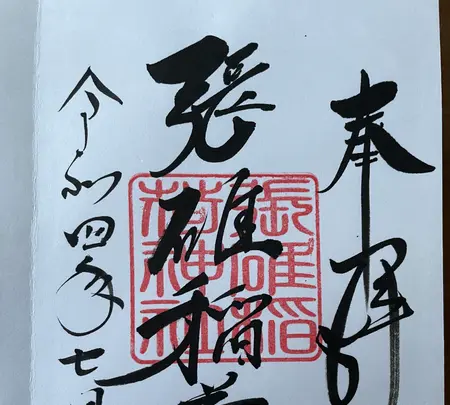 奉拝
張碓稲
令和四年七月
張碓稲
荷神社